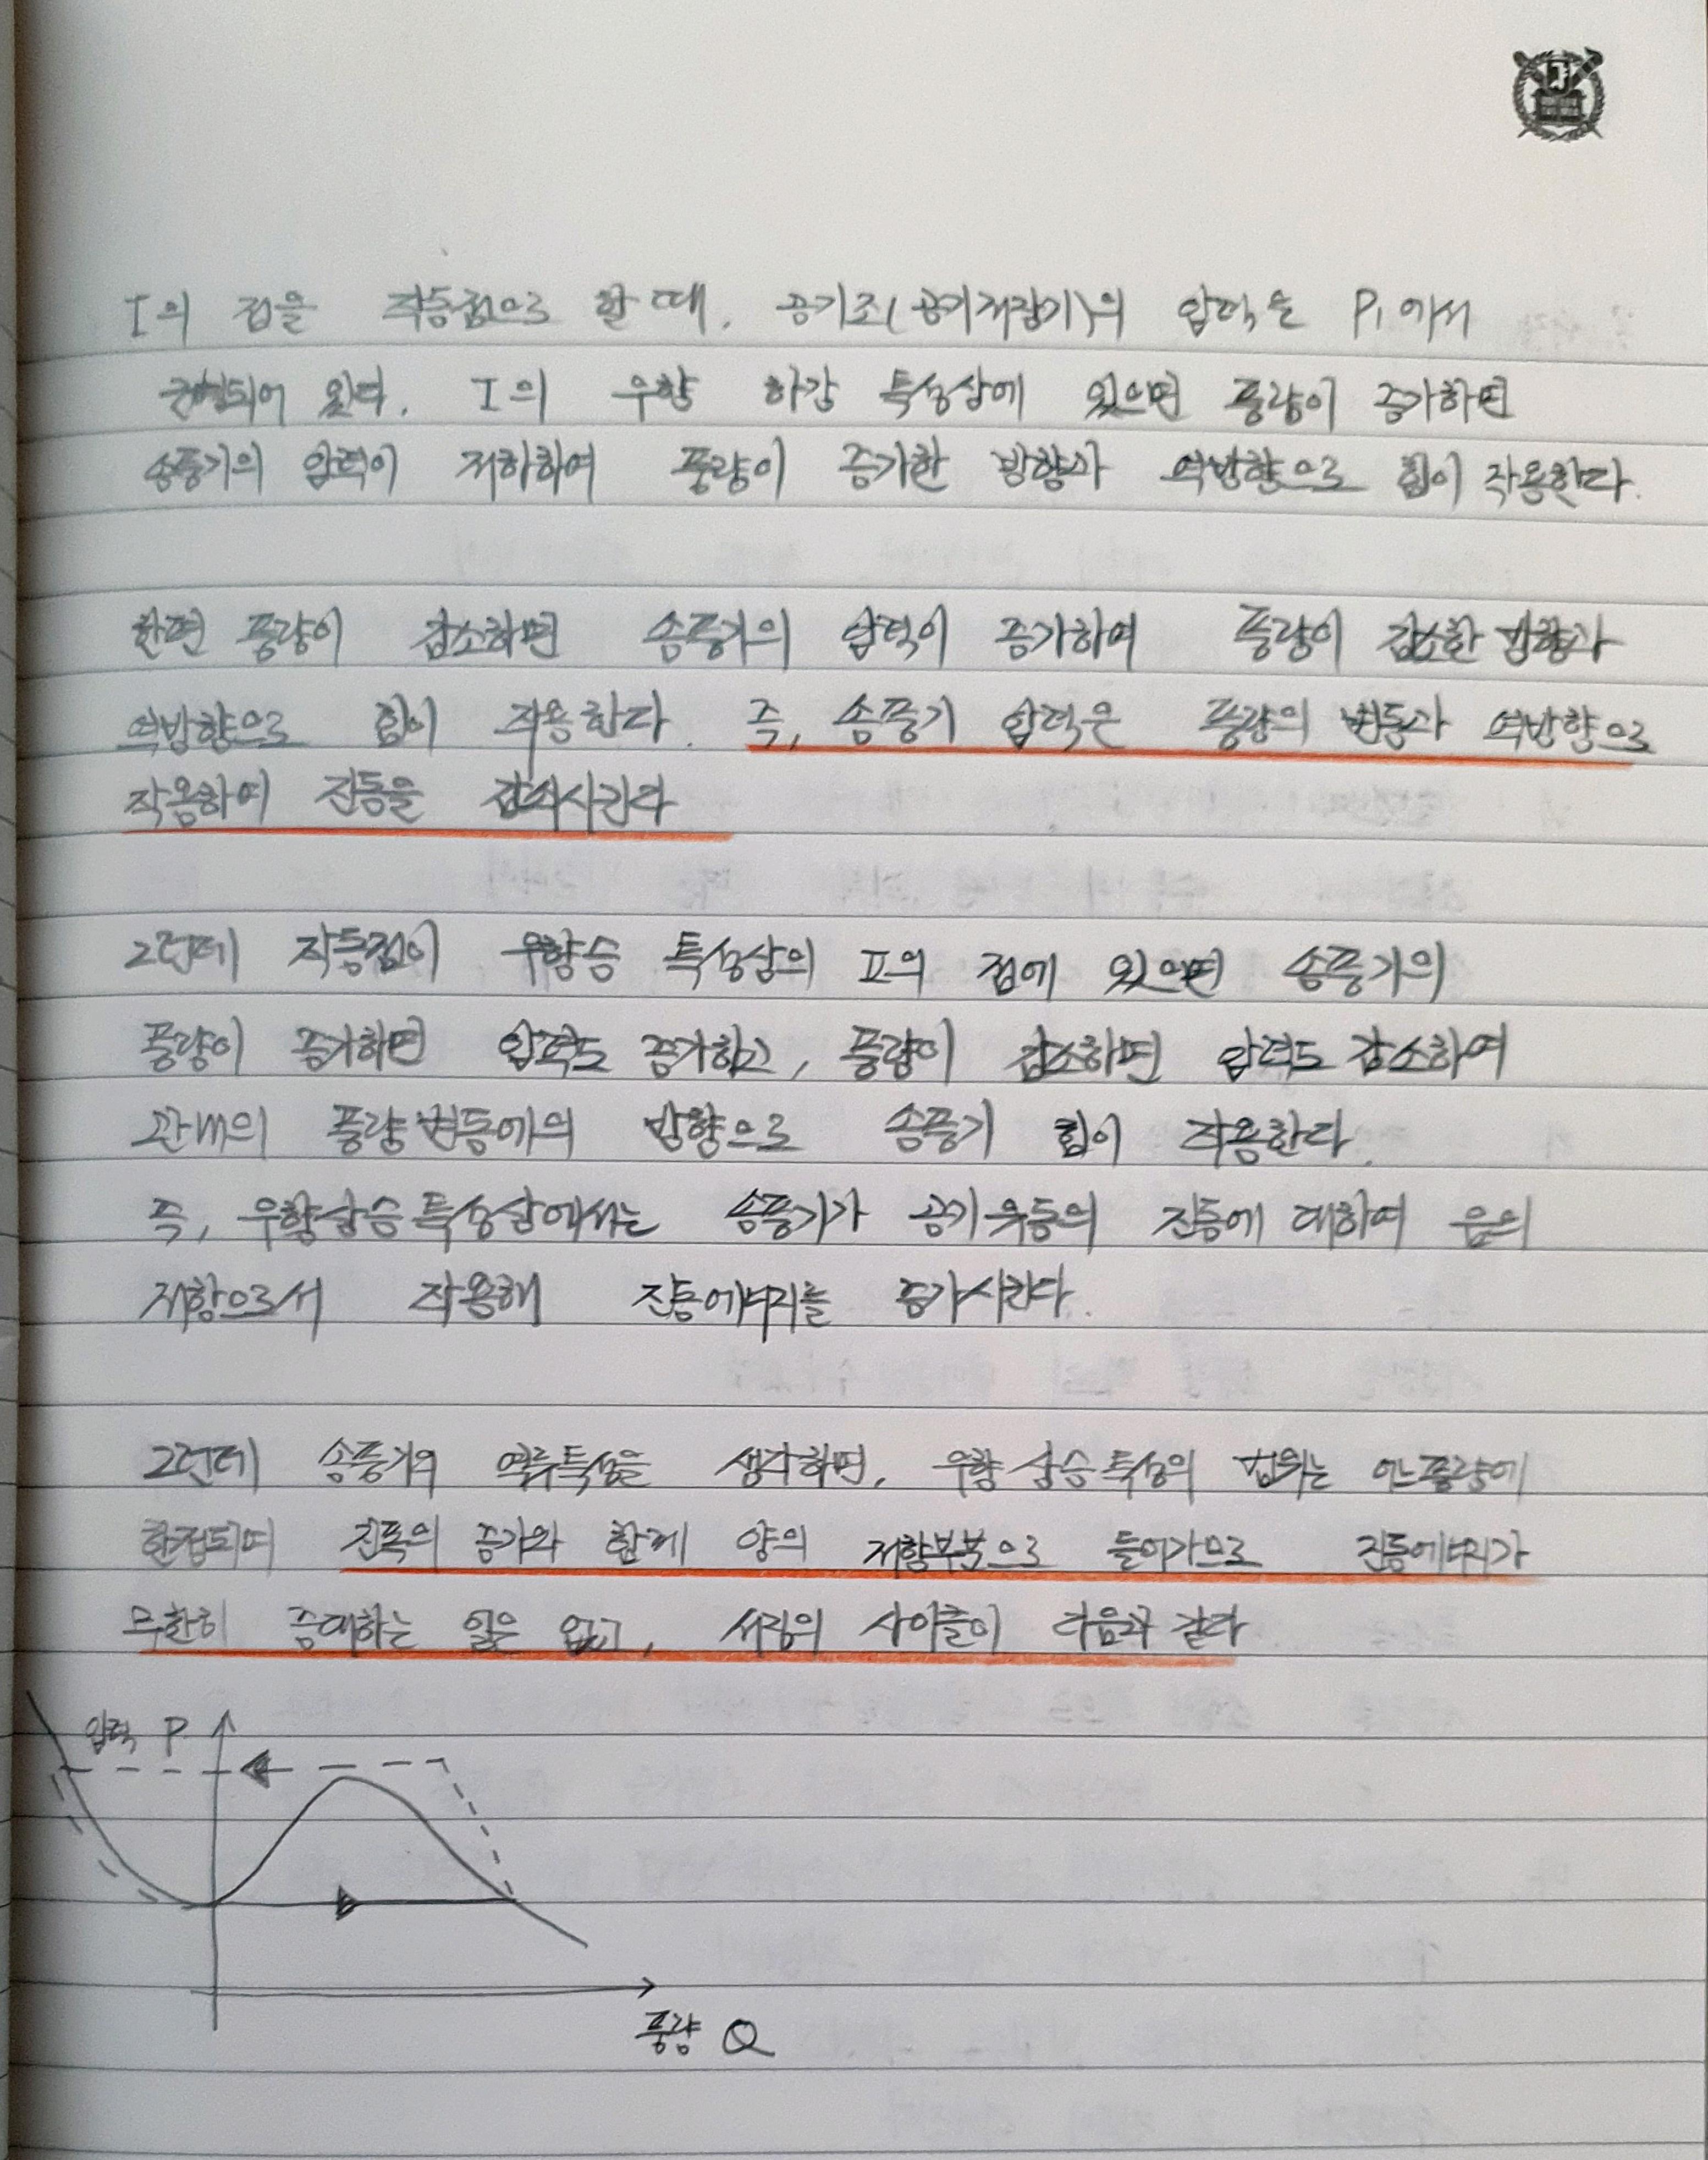 I의 점을 작동점으로 할 때, 공기조(공기저장기)의 압력은 P₁에서
균형되어 있다. I의 우향 하강 특성상에 있으면 풍량이 증가하면
송풍기의 압력이 저하하여 풍량이 증가한 방향과 역방향으로 힘이 작용한다.
한편 풍량이 감소하면 송풍기의 압력이 증가하여 풍량이 감소한 방향과
역방향으로 힘이 작용한다. 즉, 송풍기 압력은 풍량의 변동과 역방향으로
작용하여 진동을 감쇠시킨다
그런데 작동점이 우향승 특성상의 II의 점에 있으면 송풍기의
풍량이 증가하면 압력도 증가하고, 풍량이 감소하면 압력도 감소하여
관내의 풍량변동에의 방향으로 송풍기 힘이 작용한다.
즉, 우향상승특성상에서는 송풍기가 공기유동의 진동에 대하여 음의
저항으로서 작용해 진동에너지를 증가시킨다.
그런데 송풍기의 역류특성을 생각하면, 우향상승특성의 범위는 어느풍량에
한정되며 진폭의 증가와 함께 양의 저항부분으로 들어가므로 진동에너지가
무한히 증대하는 일은 없고, 서징의 사이클이 다음과 같다
압력 P
풍량 Q